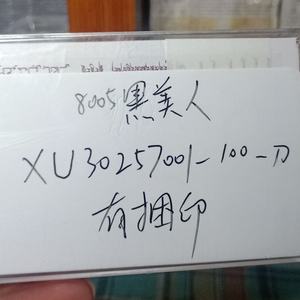 8005黑美人
XU30257001-100一刀
有捆印